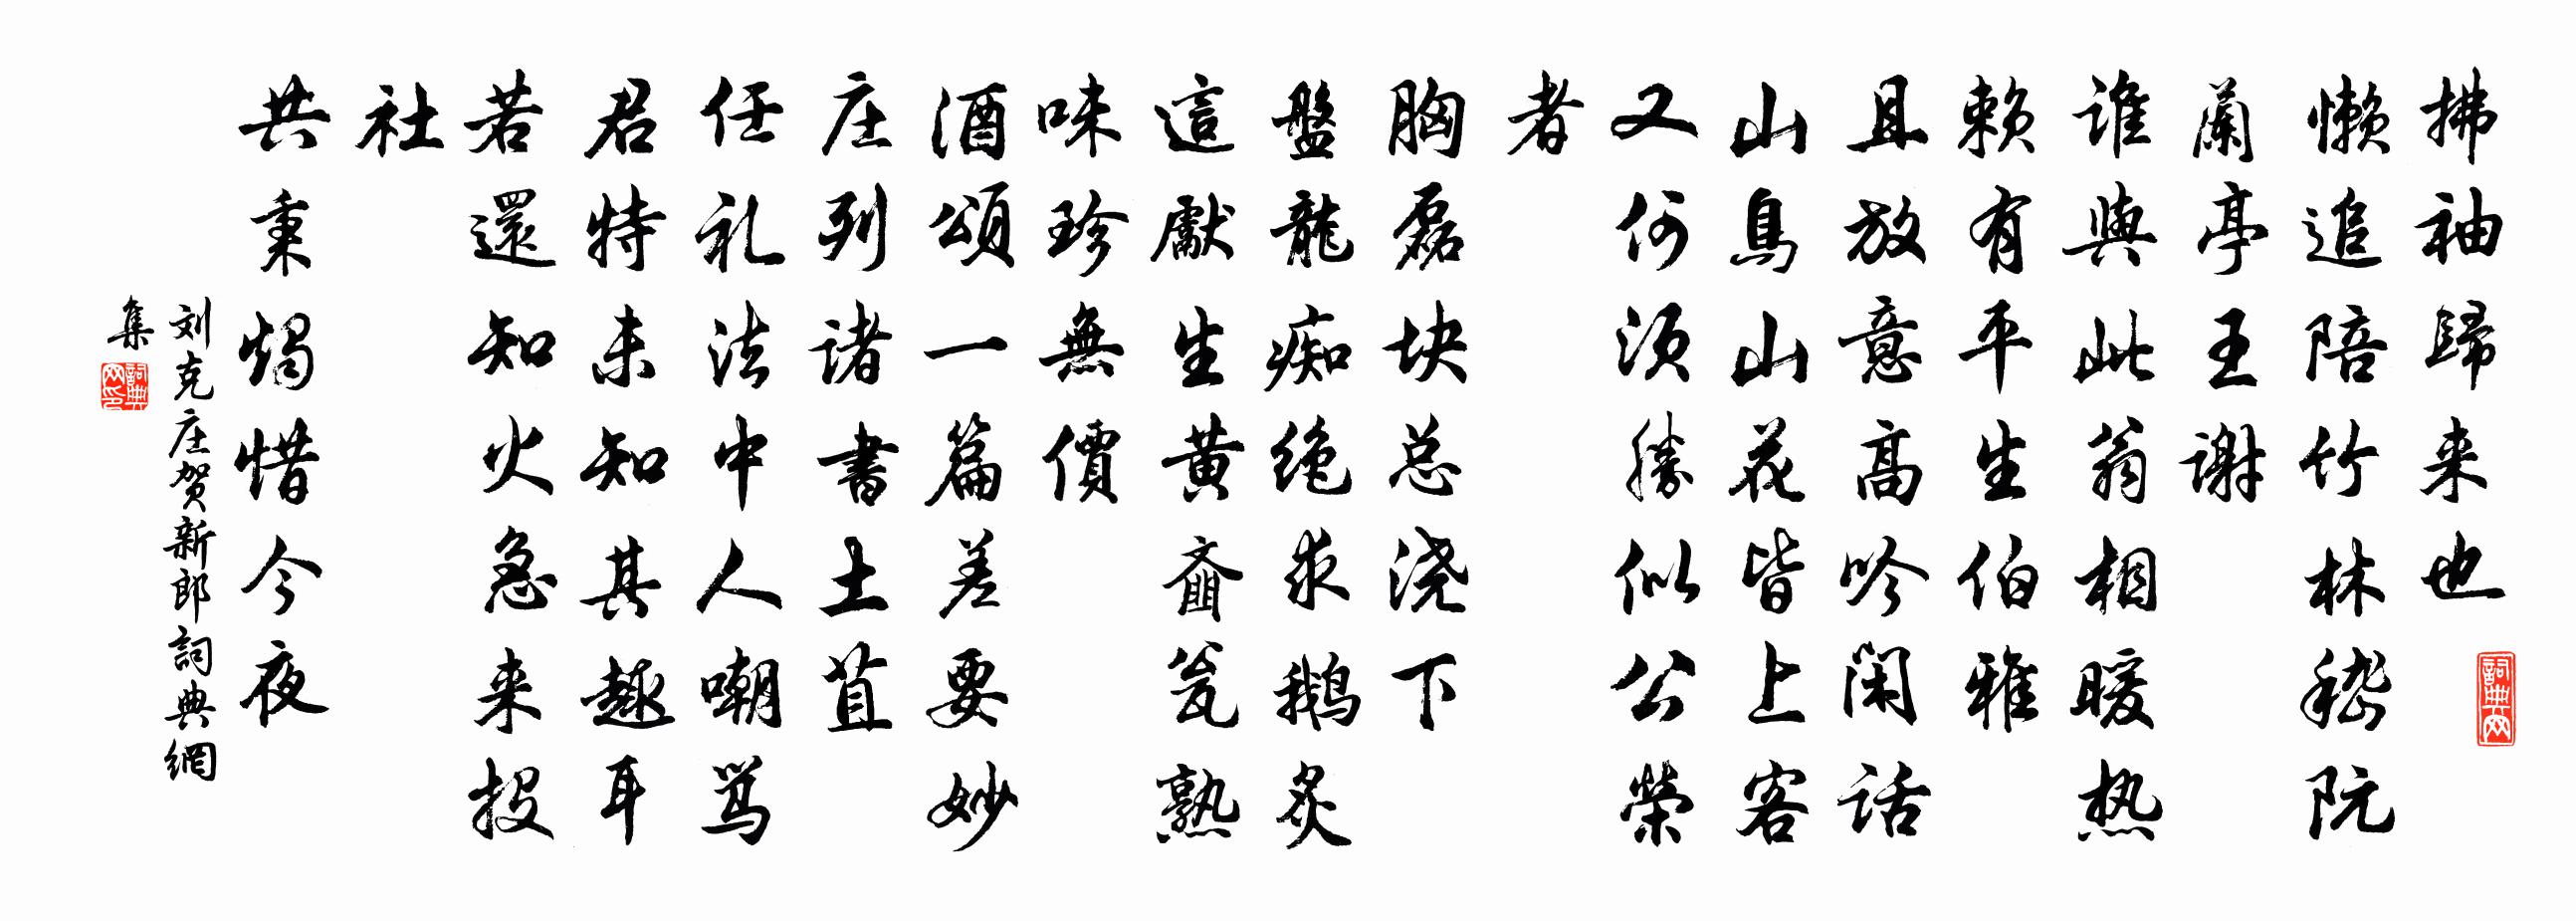 拂袖歸来也
懒追陪竹林嵇阮
蘭亭王谢
谁與此翁相暖热
赖有平生伯雅
且放意高吟闲话
山鳥山花皆上客
又何须勝似公榮
者
胸磊块总浇下
盤龍痴绝求鹅炙
這獻生黄齑瓮熟
味珍無價
酒頌一篇差要妙
庄列诸書土苴
任礼法中人嘲骂
君特未知其趣耳
若還知火急来投
社
共秉燭惜今夜
刘克庄贺新郎詞典網
集
詞典网
詞典网印